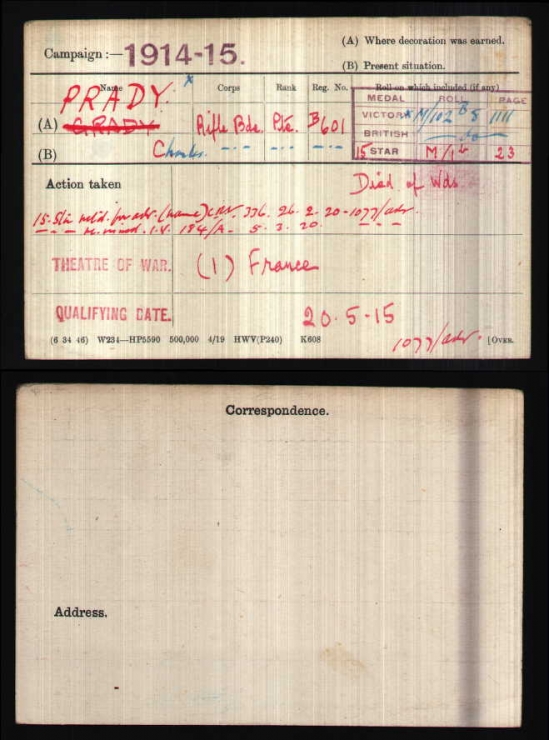 Campaign :— 1914-15.
(A) Where decoration was earned.
(B) Present situation.
Name Corps Rank Reg. No. Roll on which included (if any)
PRADY. x
MEDAL ROLL PAGE
(A) GRADY Rifle Bde. Pte. B601
VICTORY M/102 B5 1111
BRITISH -do-
(B) Charles. -"- -"-
15 STAR M/1 23
Action taken
Died of Wds
15. Str retd. for adv. (name) 336. 26. 2. 20 - 1077/adv.
I.V. 184/A - 5. 3. 20.
THEATRE OF WAR. (1) France
QUALIFYING DATE. 20.5-15
(6 34 46) W234—HP5590 500,000 4/19 HWV(P240) K608
1077/adv. [OVER.
Correspondence.
Address.